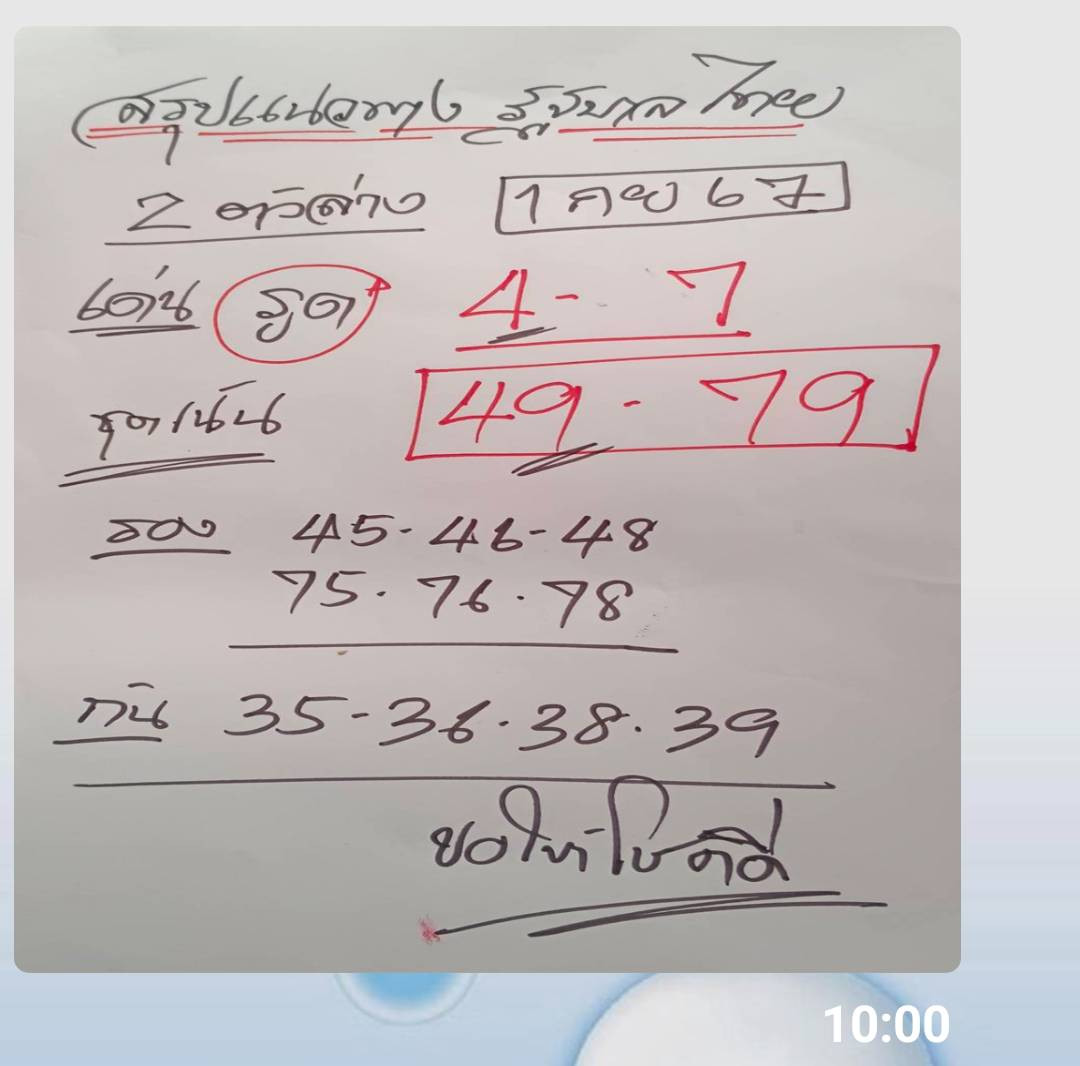 สรุปแนวทาง รัฐบาล ไทย
2 ตัวล่าง 1 กย 67
เด่น รูด 4 - 7
ชุดเน้น 49 - 79
รอง 45 - 46 - 48
75 . 76 . 78
กัน 35 - 36 . 38 . 39
ขอให้โชคดี
10:00